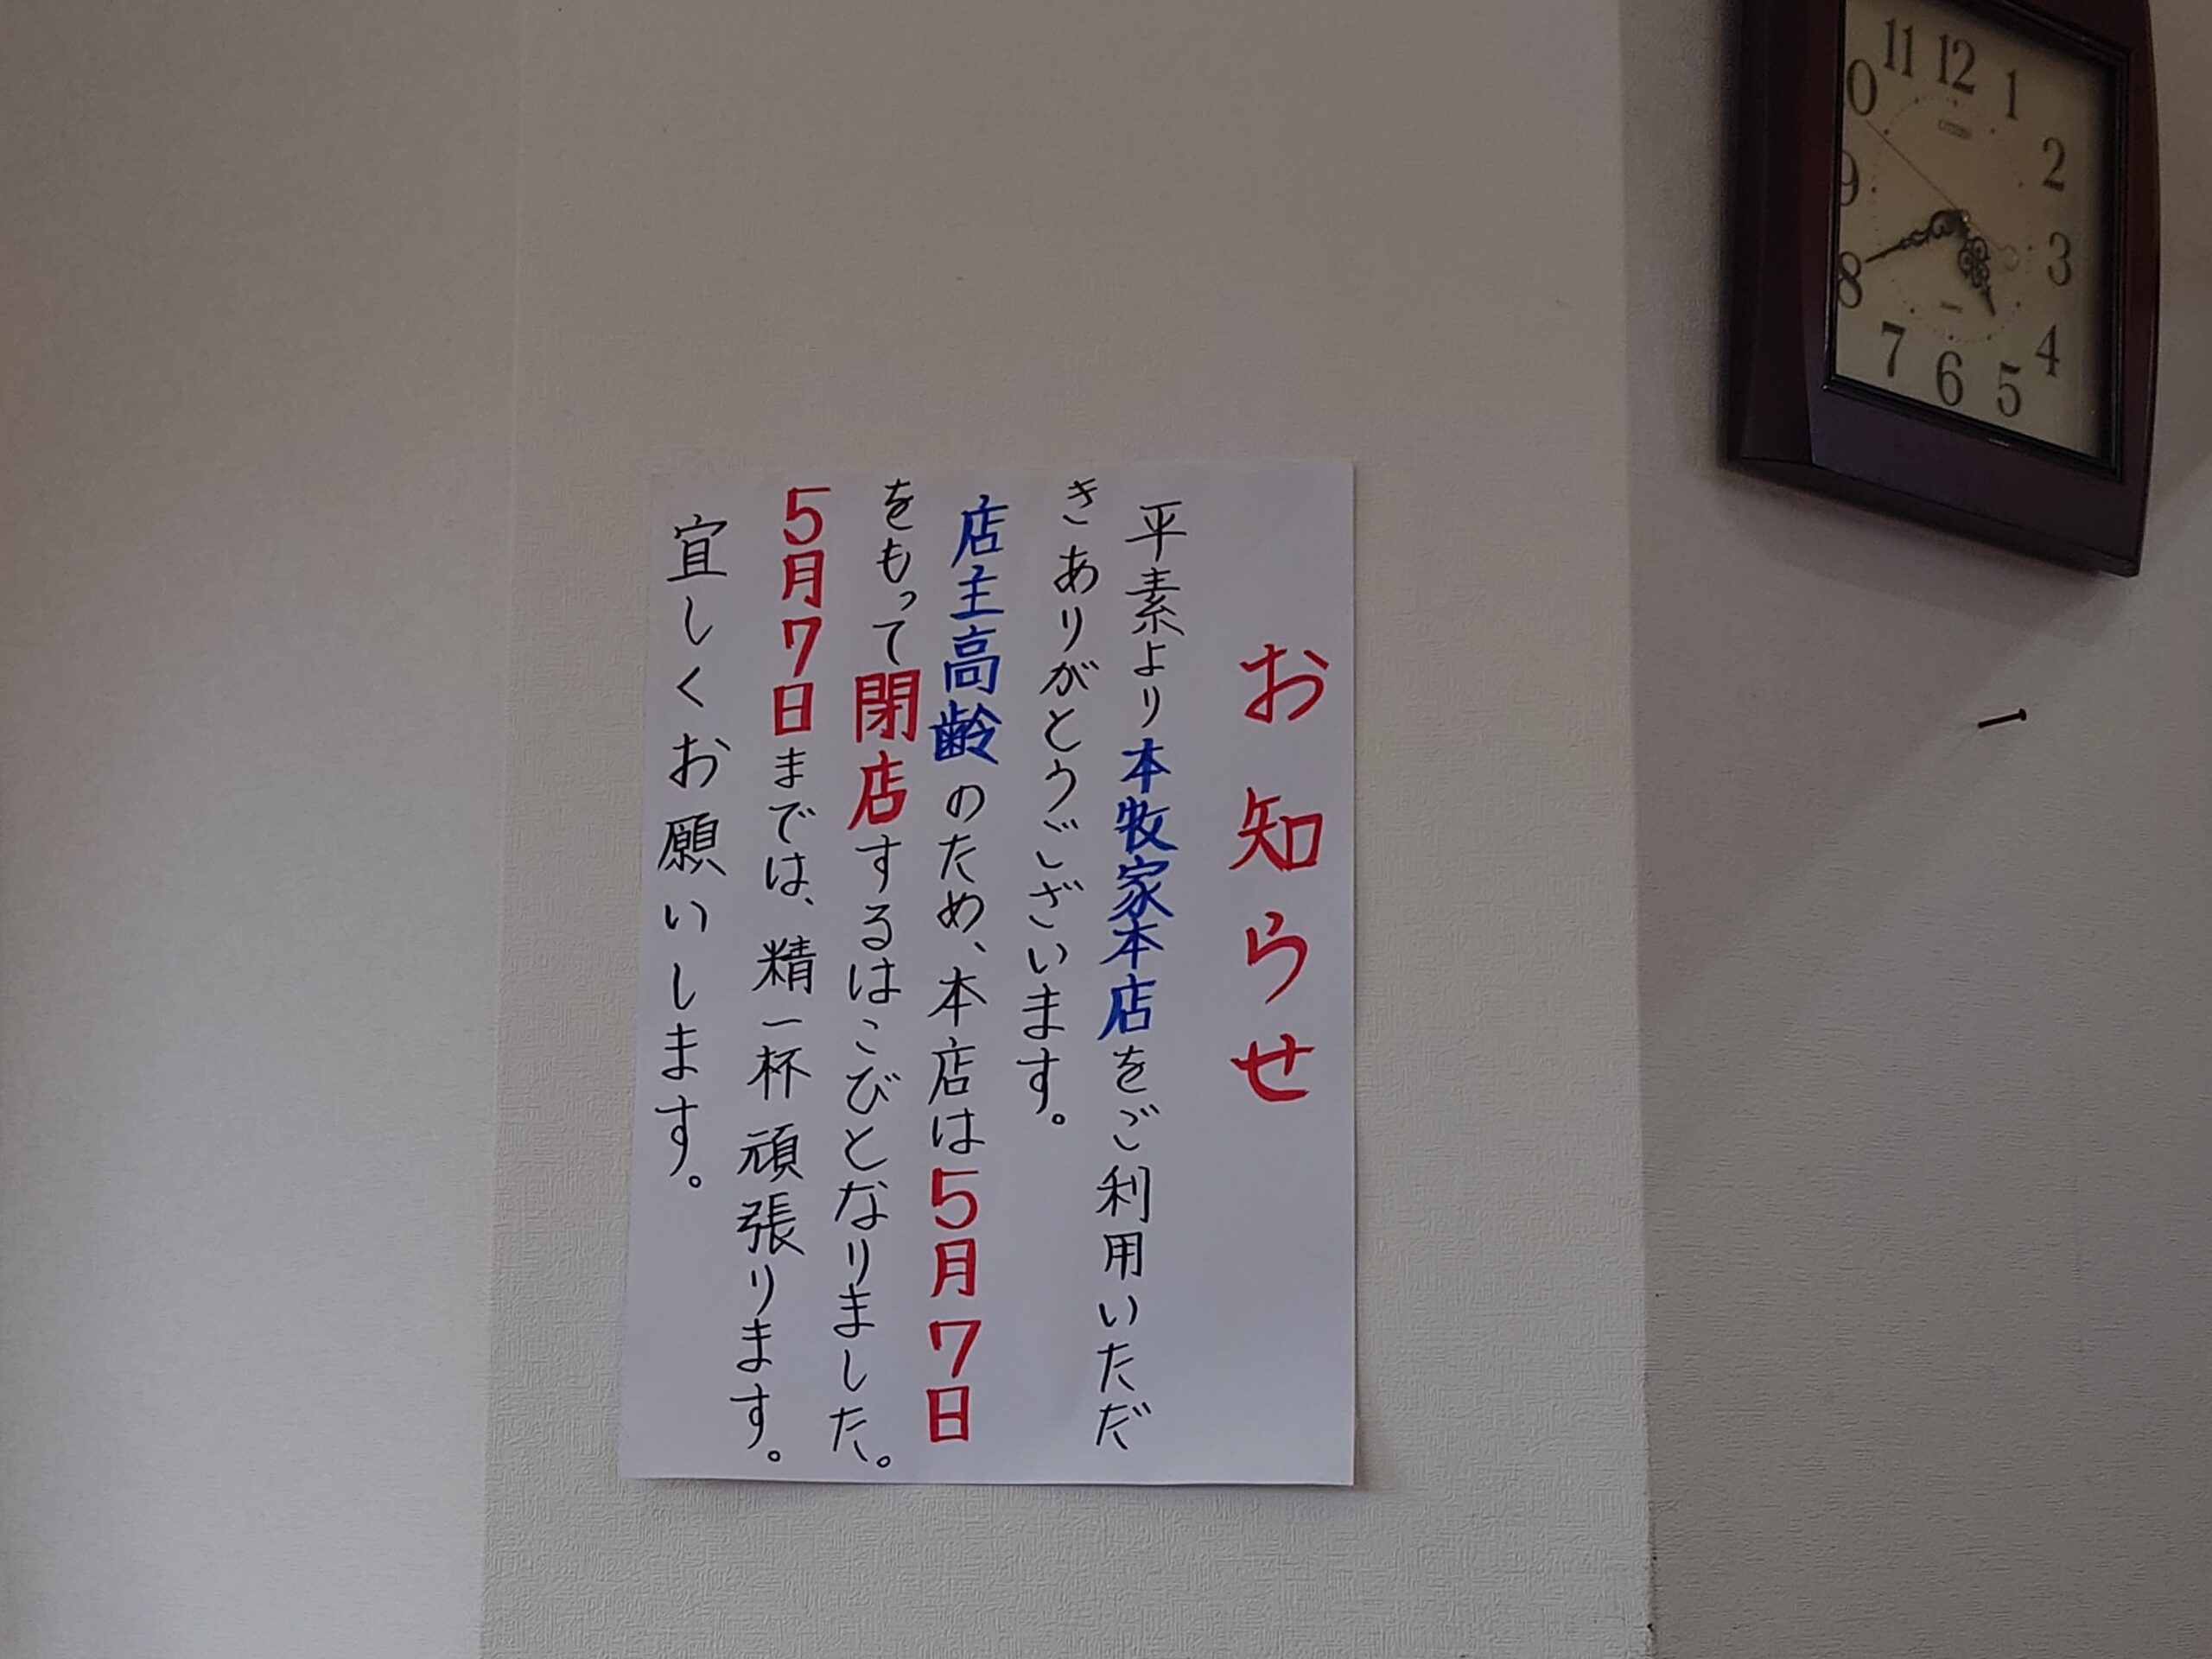 お知らせ
平素より本牧家本店をご利用いただ
きありがとうございます。
店主高齢のため、本店は5月7日
をもって閉店するはこびとなりました。
5月7日までは、精一杯頑張ります。
宜しくお願いします。
11 12 1
0 2
9 3
8 4
7 6 5
CITIZEN